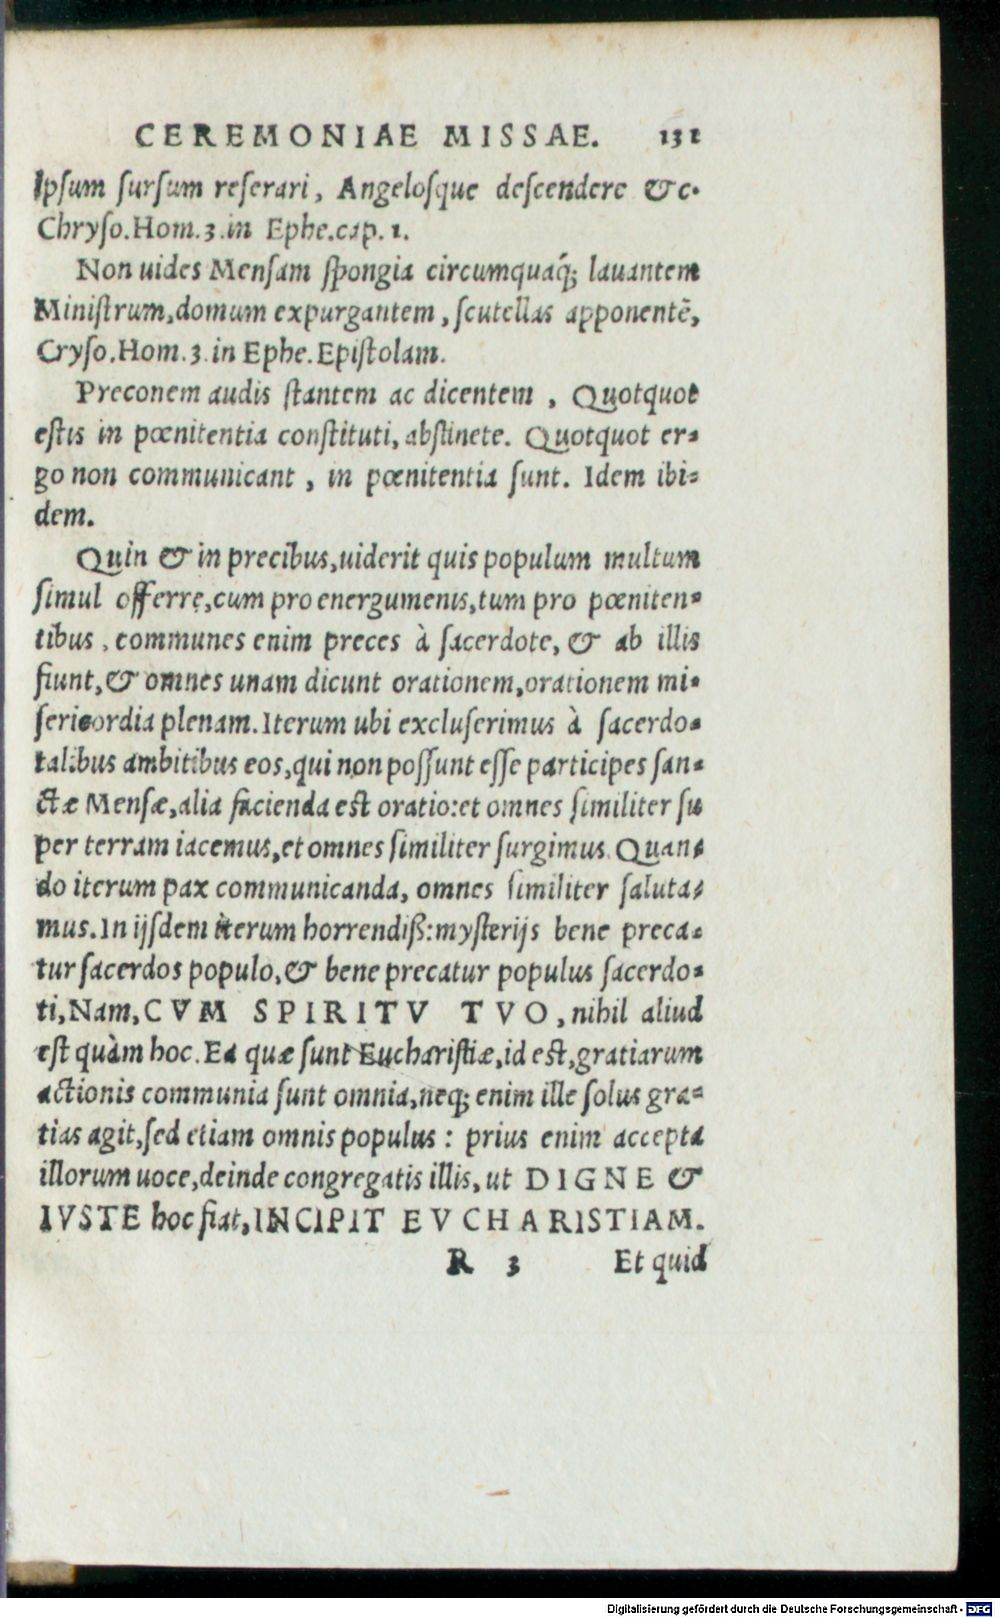 CEREMONIAE MISSAE. 131
Ipsum ſurſum reſerari, Angeloſque deſcendere &c.
Chryſo.Hom.3.in Ephe.cap.1.
Non uides Menſam ſpongia circumquaq́; lauantem
Miniſtrum,domum expurgantem, ſcutellas apponentē,
Cryſo.Hom.3.in Ephe.Epiſtolam.
Preconem audis ſtantem ac dicentem, Quotquot
eſtis in pœnitentia conſtituti, abſtinete. Quotquot er-
go non communicant, in pœnitentia ſunt. Idem ibi-
dem.
Quin & in precibus,uiderit quis populum multum
ſimul offerre,cum pro energumenis,tum pro pœniten-
tibus, communes enim preces à ſacerdote, & ab illis
fiunt,& omnes unam dicunt orationem,orationem mi-
ſericordia plenam.Iterum ubi excluſerimus à ſacerdo-
talibus ambitibus eos,qui non poſſunt eſſe participes ſan-
ctæ Menſæ,alia facienda est oratio:et omnes ſimiliter ſu
per terram iacemus,et omnes ſimiliter ſurgimus. Quan-
do iterum pax communicanda, omnes ſimiliter ſaluta-
mus.In ijſdem iterum horrendiß:myſterijs bene preca-
tur ſacerdos populo,& bene precatur populus ſacerdo-
ti,Nam,CVM SPIRITV TVO,nihil aliud
eſt quàm hoc.Ea quæ ſunt Euchariſtiæ,id eſt,gratiarum
actionis communia ſunt omnia,neq; enim ille ſolus gra-
tias agit,ſed etiam omnis populus: prius enim accepta
illorum uoce,deinde congregatis illis, ut DIGNE &
IVSTE hoc fiat,INCIPIT EVCHARISTIAM.
R 3 Et quid
Digitalisierung gefördert durch die Deutsche Forschungsgemeinschaft - DFG